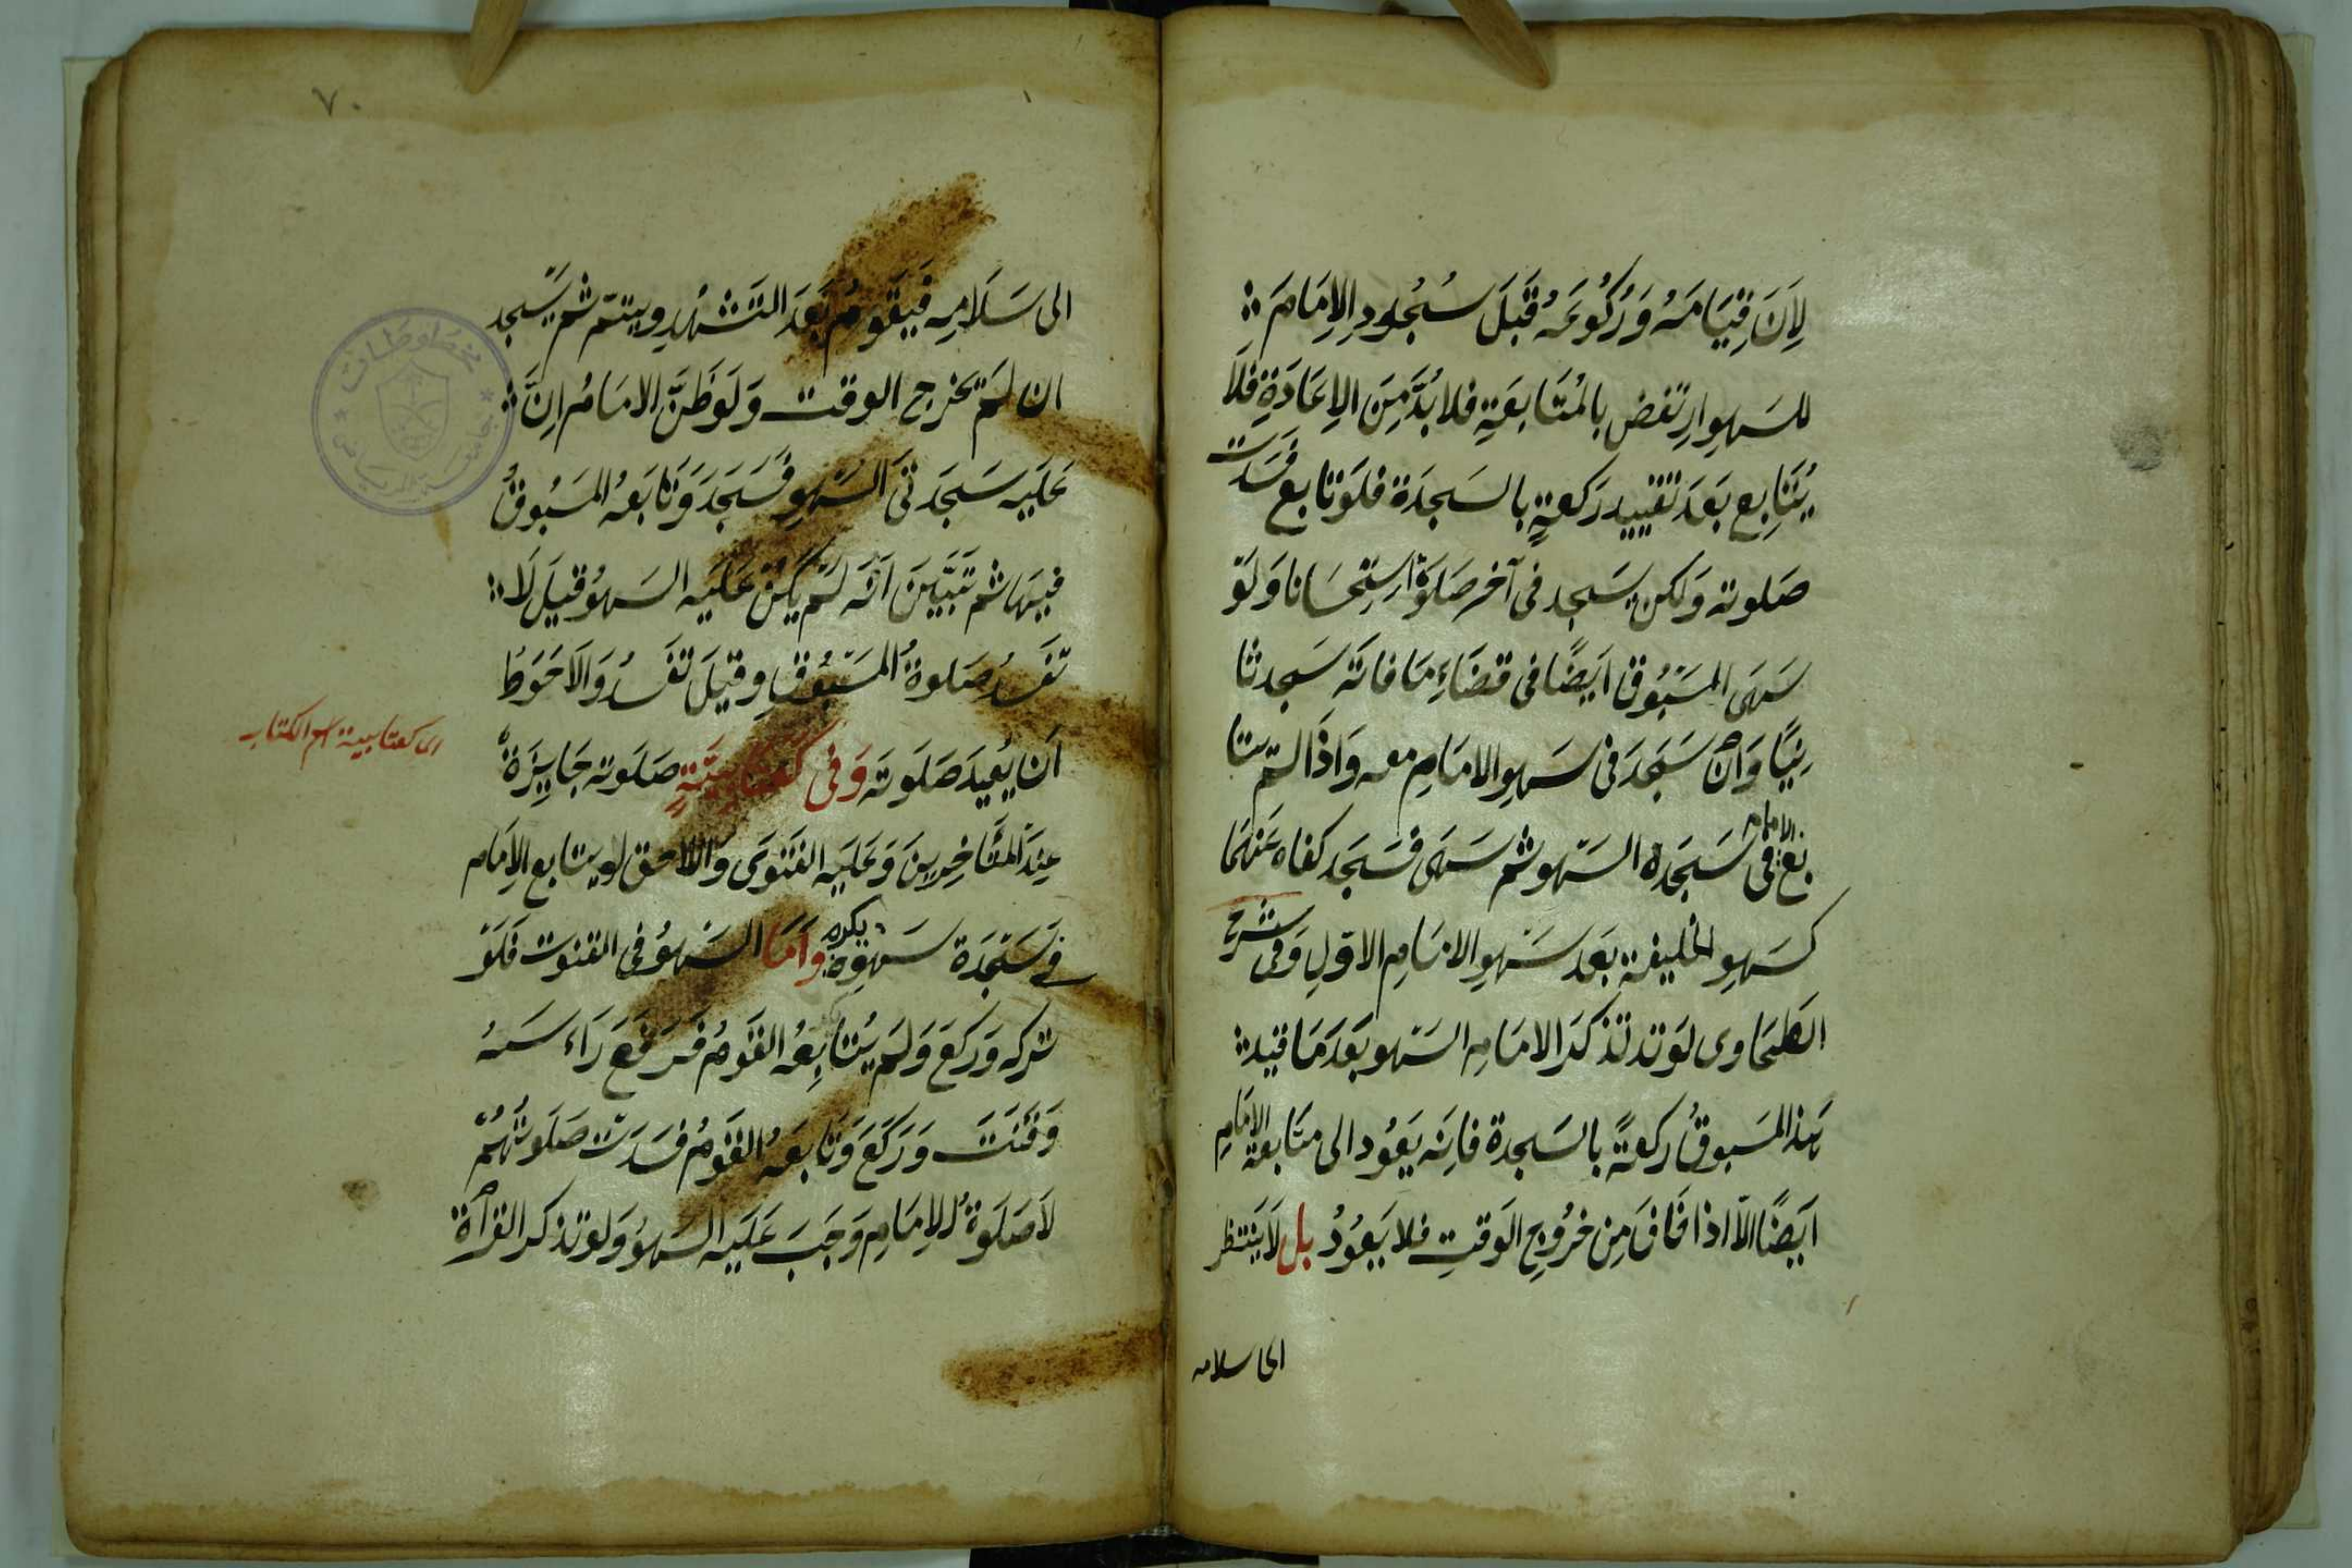 لِاَنَ قِيَامَهُ وَرُكُوعَهُ قَبْلَ سُجُودِ الاِمَامِ
للسهو ارتفض بالمُتَابِعَةِ فلا بُدَّ مِنَ الاِعَادَةِ فلَا
يُتَابِع بَعدَ تقييد رَكعةٍ بالسَجدَة فلَو تابع فَسَدت
صَلوته وَلكن يسَجد فى آخر صَلَوة اِستِحسَانا وَلَو
سَهَى المَسْبُوق ايَضًا فى قضَاءِ مَا فاتَه سَجد ثا
نِيًا وَان سَجَدَ فى سَهوِ الامَامِ معه وَاِذَا لم يتا
بع الامام فى سَجدة السَهو ثم سَهَى فسَجَد كفاه عَنهُمَا
كسَهوِ الخليفة بَعد سَهوِ الامَامِ الاوّلِ وَفى شرح
الطَحَاوى لَو تذكَرَ الامَام السَهو بَعدَ مَا قيد
هذا المَسبوقُ ركعةً بالسَجدة فاِنَه يَعُود الى متابعة الامَامِ
ايَضًا الاّ اذا خَافَ مِن خرُوجِ الوَقتِ فلا يَعُودُ بل لَا ينتظر
الى سلامه
٧٠
الى سَلَامِه فيَقومُ بَعدَ التَشَهُّدِ ويتم ثم يَسجد
ان لَم يخرج الوقت وَلَو ظَنَّ الامَامُ اِنَّ
عَليه سَجدَتى السَهوِ فَسَجَدَ وَتَابَعهُ المَسبُوقُ
فيهَا ثم تَبَيَّنَ اَنَه لَم يَكُنْ عَلَيه السَهوُ قيلَ لَا
تَفسُد صَلوةُ المَسْبُوقِ وقيلَ تفَسُد وَالاَحوَطُ
اَن يُعِيدَ صَلَوتَه وَفى كعتابيَّةٍ صَلَوته جَايِزَةٌ
عِندَ المتَأخِرِينَ وَعَلَيه الفَتوَى وَاللاحق لو يتابع الاِمَام
اى كعتابية اسم الكتاب
فى سَجدَة سَهوِه يكره وَاَمَا السَهوُ فى القنوت فَلَو
تركه وَرَكَعَ وَلَم يُتابِعهُ القَومُ فرَفَعَ رَاءسَهُ
وَقَنَتَ وَرَكَعَ وَتَابَعَهُ القَومُ فسَدَت صَلَوتُهُم
لَا صَلَوةُ الاِمَامِ وَجَبَ عَلَيه السَهوُ وَلَو تذكر القرآة